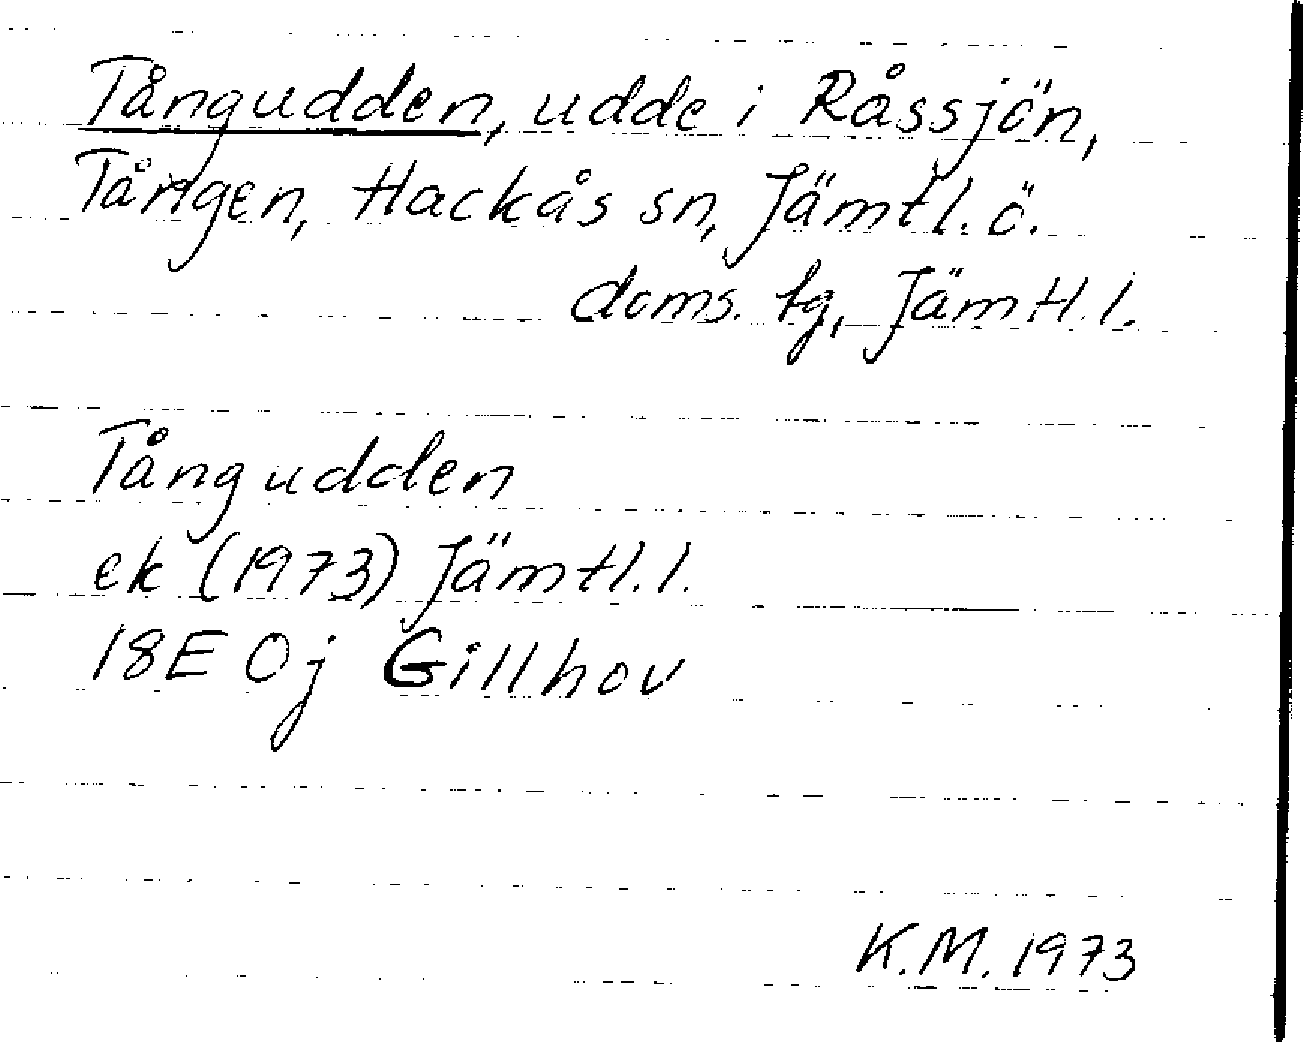 Tångudden, udde i Råssjön,
Tången, Hackås sn, Jämtl. ö.
doms. tg, Jämtl. l.
Tångudden
ek (1973) Jämtl. l.
18E 0j Gillhov
K.M. 1973